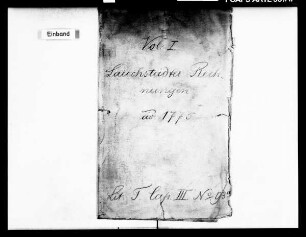 Einband
Vol. I
Lauchstedter Rech
nungen
ao 1775
Lit. T Cap. III No